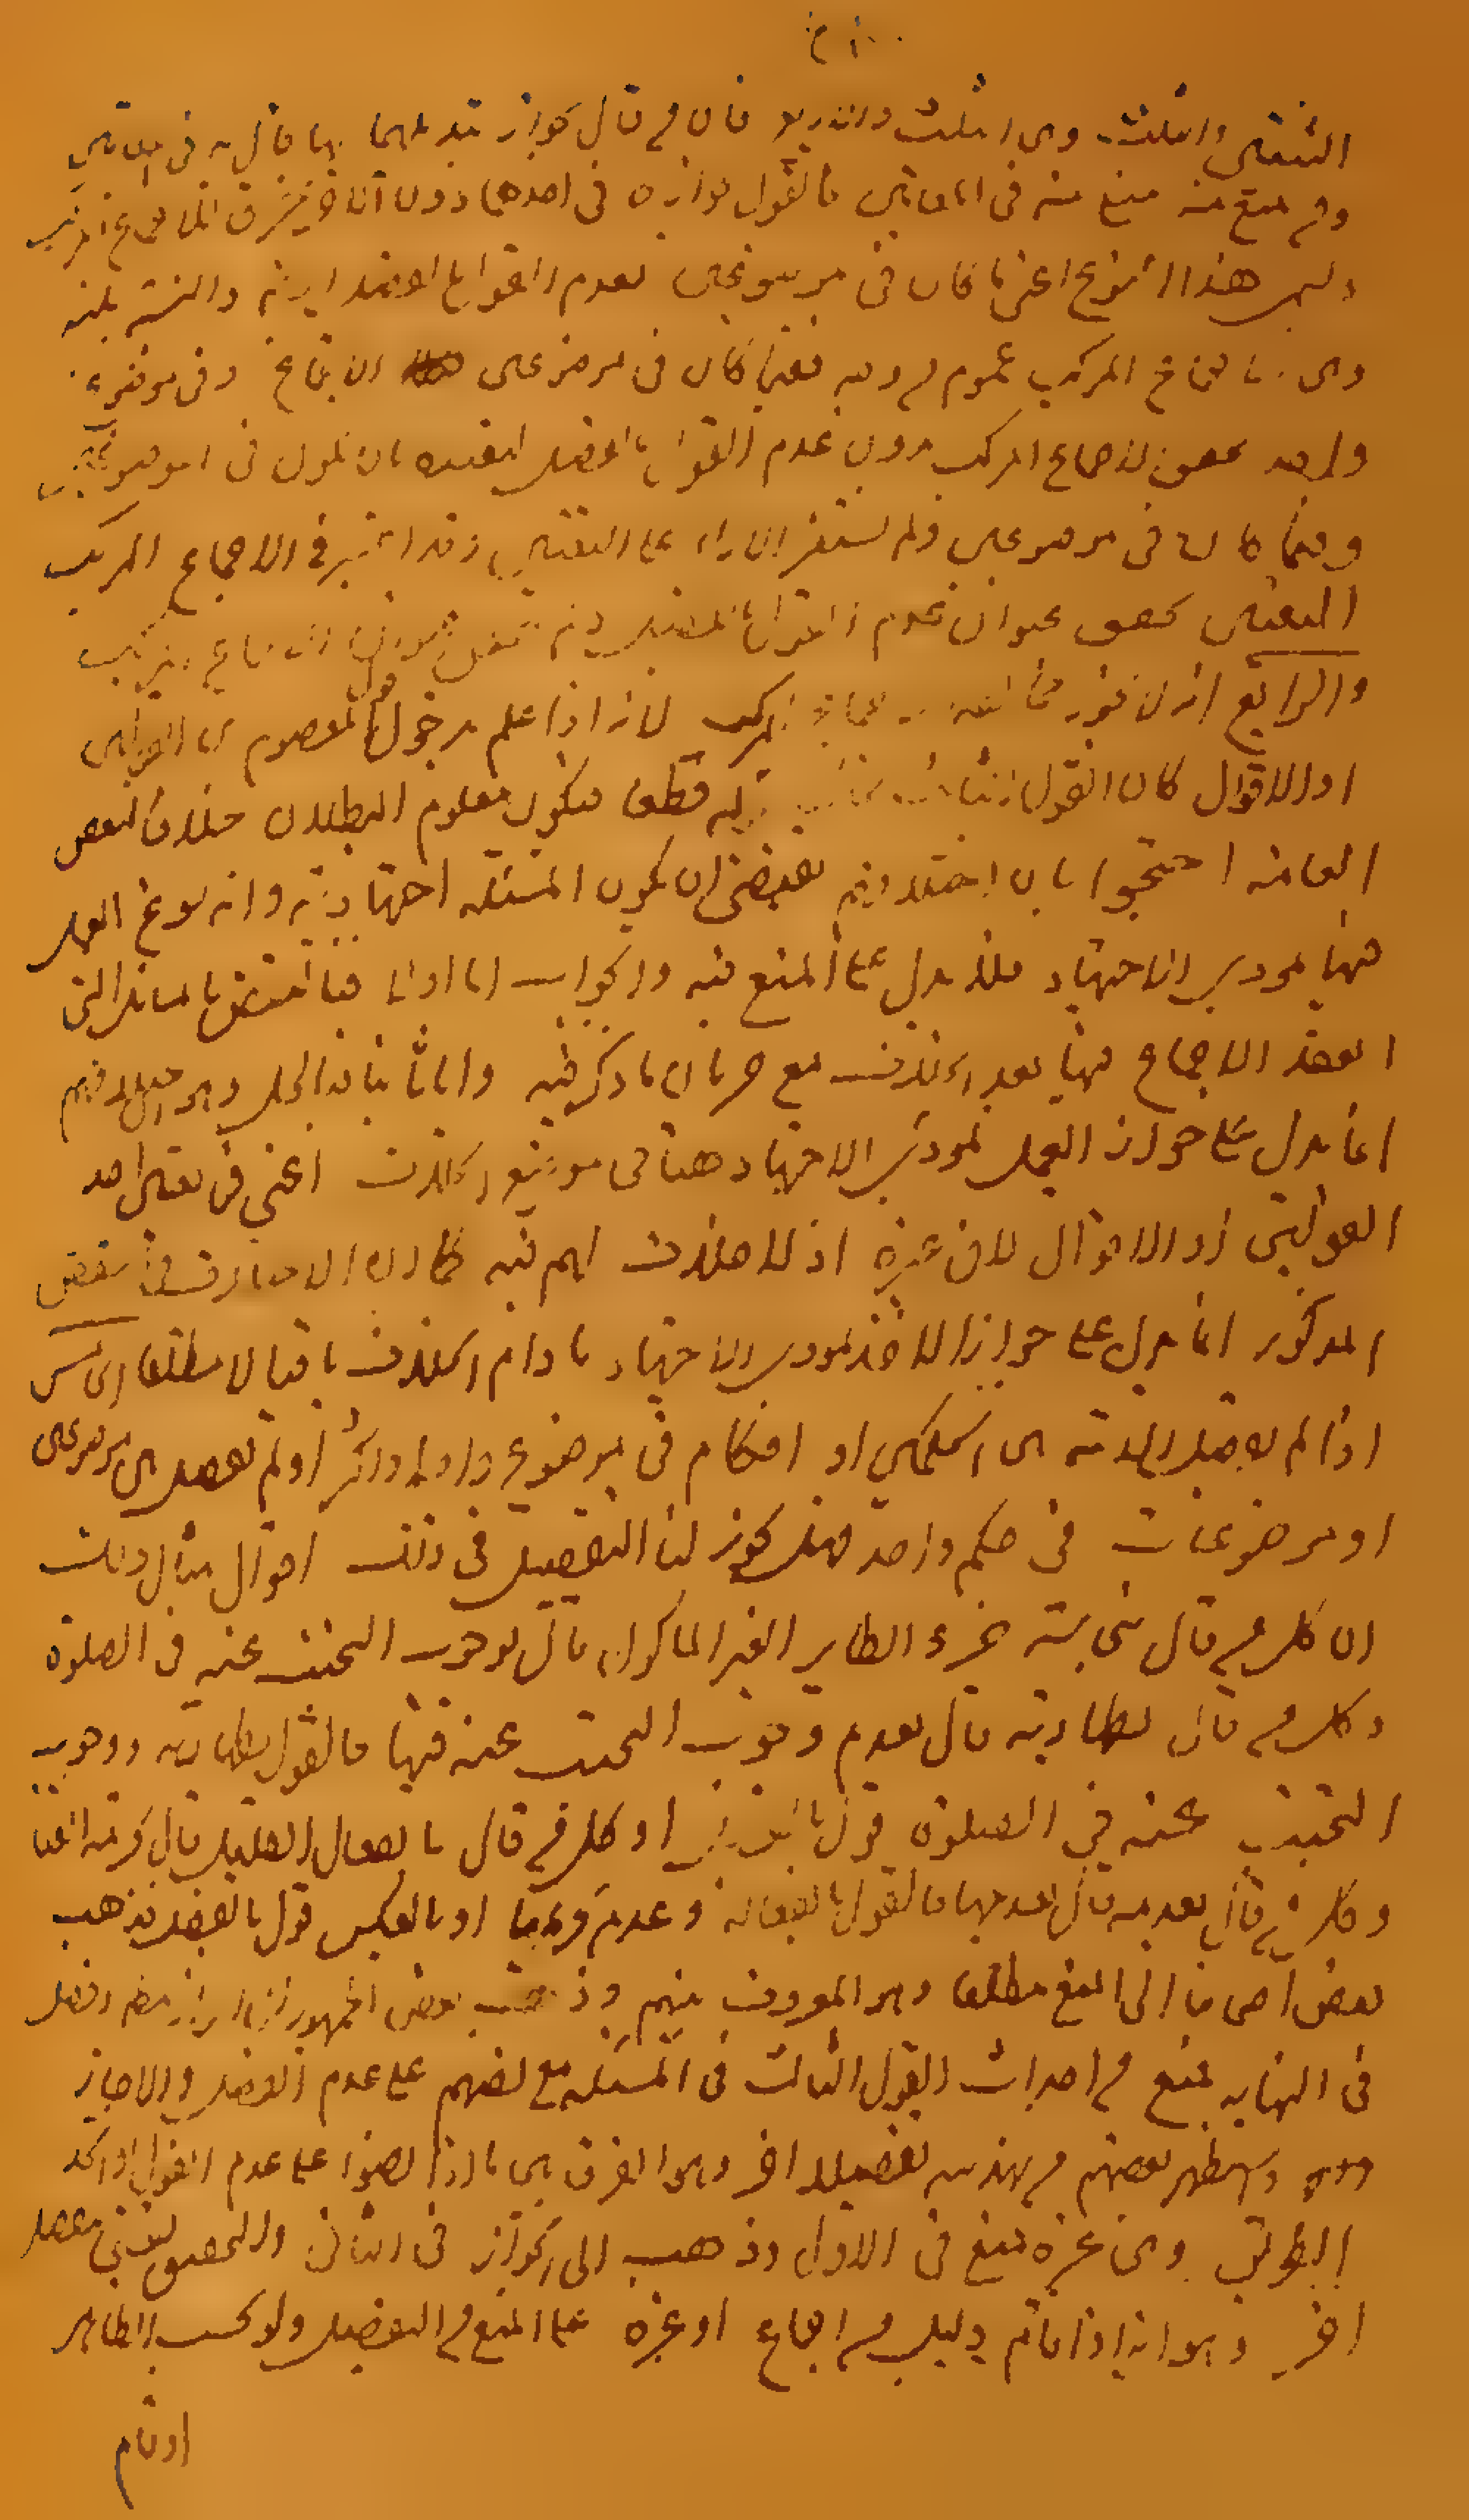 الثنتين والثلث وبين الثلث والاربع فان من قال بجواز تبديلهما بها قال به في المقامين
ومن منع منه منع منه في المقامين فالقول بجوازه في احدهما دون الآخر خرق للاجماع المركب
وليسم هذا النوع اعني ما كان في موضوعين بعدم القول بالفصل ايضا والنسبة بينه
وبين الاجماع المركب عموم من وجه ففيما كان في موضوعين الاجماع وفي موضوع
واحد يتحقق الاجماع المركب بدون عدم القول بالفصل لتقييده بان يكون في موضوعين
وفيما كان في موضوعين ولم يستقر الآراء على التعيين وقد اعتبر في الاجماع المركب
التعيين يتحقق عنوان عدم القول بالفصل ولم يتحقق عنوان الاجماع المركب
والرابع انه لا يجوز مخالفة الاجماع المركب لانه اذا علم دخول قول المعصوم في القولين
او الاقوال كان القول الثالث مخالف لرأيه قطعا فيكون معلوم البطلان خلافا لبعض
العامة احتجوا بان اختلافهم يقتضي ان يكون المسئلة اجتهادية وانه يسوغ العمل
فيها بمؤدى الاجتهاد فلا يدل على المنع فيه والجواب اما اولا فبالنقض بالمسائل التي
انعقد الاجماع فيها بعد الخلاف مع جريان ما ذكر فيه واما ثانيا فبالحل وهو ان اختلافهم
انما يدل على جواز العمل بمؤدى الاجتهاد هنا في موضع الخلاف اعني في تعيين احد
القولين او الاقوال لا في غيره اذ لا خلاف لهم فيه كما ان الاختلاف في النقض
المذكور انما يدل على جواز الاخذ بمؤدى الاجتهاد ما دام الخلاف باقيا لا مطلقا الخامس
اذا لم يفصل الامة بين الحكمين او احكام في موضوع واحد او اكثر او لم يفصل بين موضوعين
او موضوعات في حكم واحد فهل يجوز لنا التفصيل في ذلك اقوال مثال ذلك
ان كل من قال بنجاسة خرء الطاير الغير الماكول قال بوجوب التجنب عنه في الصلوة
وكل من قال بطهارته قال بعدم وجوب التجنب عنه فيها فالقول بطهارته ووجوب
التجنب عنه في الصلوة قول بالفصل او كل من قال بانفعال القليل قال بكرية
وكل من قال بعدمه قال بعدمها فالقول بانفعاله وعدم او بالعكس قول بالفصل فذهب
بعض اصحابنا الى المنع مطلقا وهو المعروف بينهم وذهب بعض الجمهور الى الجواز مطلقا وفصل
في النهاية بمنع من احداث القول الثالث في المسئلة مع نصهم على عدم الفصل والا جاز
واستظهر بعضهم من تهذيبه تفصيلا آخر وهو الفرق بين ما اذا نصوا على عدم الفصل او اتحد
الطريق وبين غيره فمنع في الاول وذهب الى الجواز في الثاني والتحقيق يقتضي تفصيلا
آخر وهو انه اذا قام دليل من اجماع او غيره على المنع من التفصيل ولو بحسب الظاهر
او قام